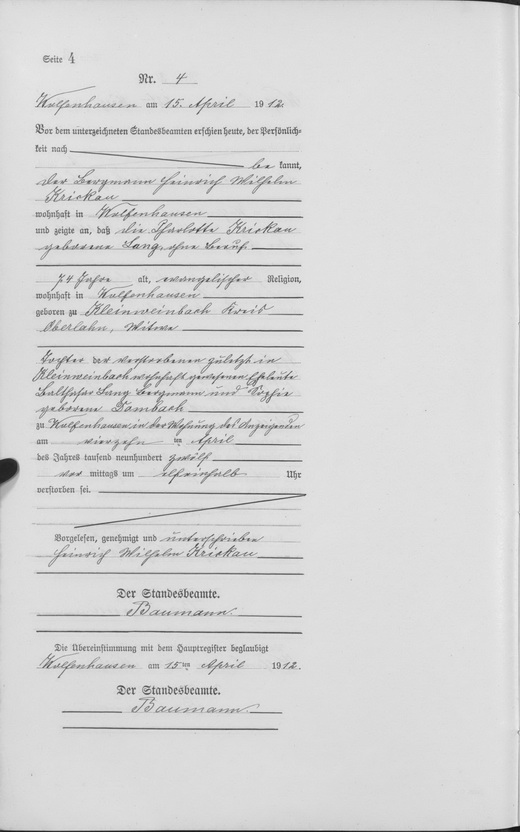 Seite 4
Nr. 4
Wolfenhausen am 15. April 1912.
Vor dem unterzeichneten Standesbeamten erschien heute, der Persönlich-
keit nach
be kannt,
der Bergmann Heinrich Wilhelm
Krickau
wohnhaft in Wolfenhausen
und zeigte an, daß die Charlotte Krickau
geborene Lang, ohne Beruf
74 Jahre alt, evangelischer Religion,
wohnhaft in Wolfenhausen
geboren zu Kleinweinbach Kreis
Oberlahn, Witwe
Tochter der verstorbenen zuletzt in
Kleinweinbach wohnhaft gewesenen Eheleute
Balthasar Lang Bergmann und Sophie
geborene Dombach
zu Wolfenhausen in der Wohnung des Anzeigenden
am vierzehn ten April
des Jahres tausend neunhundert zwölf
vor mittags um elfeinhalb Uhr
verstorben sei.
Vorgelesen, genehmigt und unterschrieben
Heinrich Wilhelm Krickau
Der Standesbeamte.
Baumann.
Die Übereinstimmung mit dem Hauptregister beglaubigt
Wolfenhausen am 15ten April 1912.
Der Standesbeamte.
Baumann.